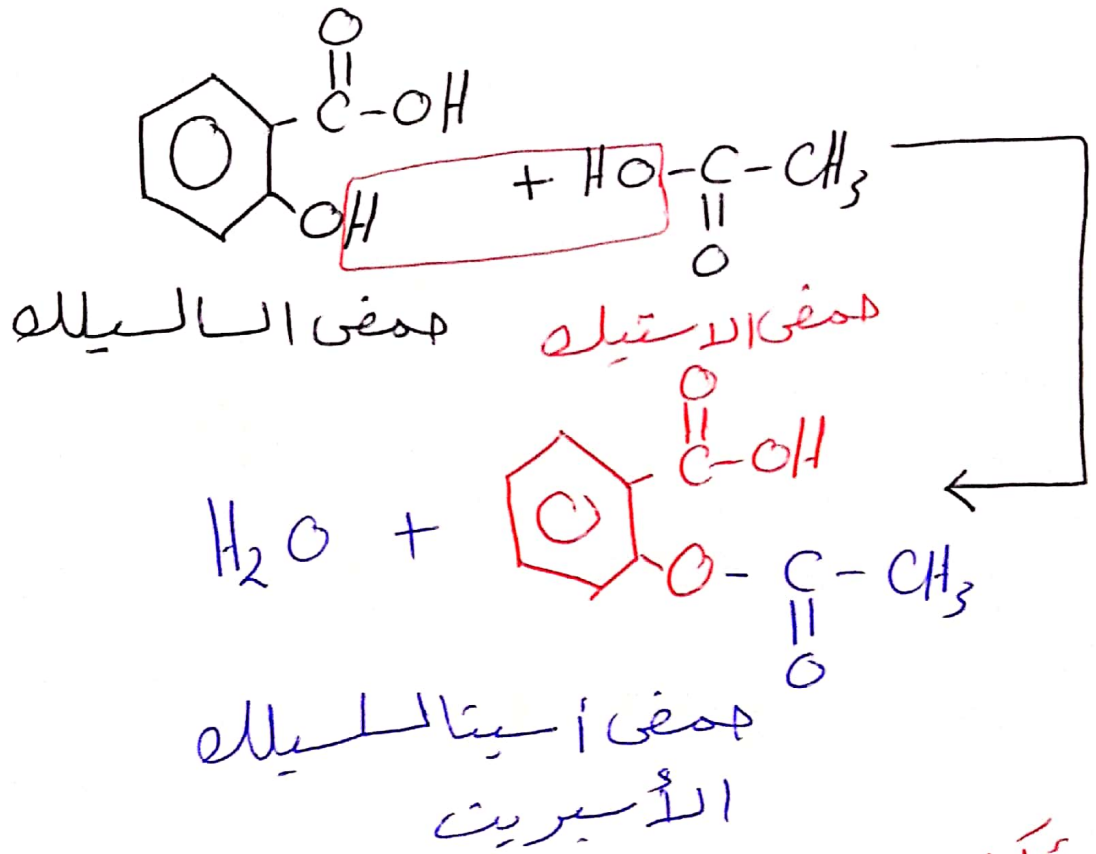 O
C-OH
+ HO-C-CH3
OH
O
حمض السالسيلك
حمض الاستيك
O
C-OH
H2O + O- C - CH3
O
حمض أسيتالسلسيلك
الأسبرين